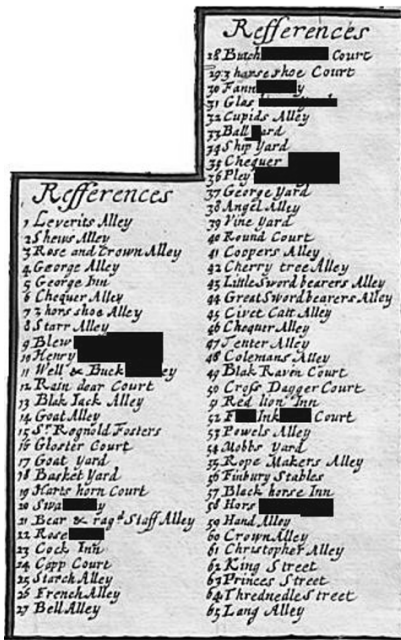 Refferences
1 Leverits Alley
2 Shews Alley
3 Rose and Crown Alley
4 George Alley
5 George Inn
6 Chequer Alley
7 3 hors shoe Alley
8 Starr Alley
9 Blew
10 Henry
11 Well & Buck ey
12 Rain dear Court
13 Blak Jack Alley
14 Goat Alley
15 Sr. Rognold Fosters
16 Gloster Court
17 Goat Yard
18 Basket Yard
19 Harts horn Court
20 Swa y
21 Bear & ragd Staff Alley
22 Rose
23 Cock Inn
24 Capp Court
25 Starch Alley
26 French Alley
27 Bell Alley
Refferences
28 Butch Court
29 3 hanse shoe Court
30 Fann y
31 Glas
32 Cupids Alley
33 Ball ard
34 Ship Yard
35 Chequer
36 Pley
37 George Yard
38 Angel Alley
39 Vine Yard
40 Round Court
41 Coopers Alley
42 Cherry tree Alley
43 Little Sword bearers Alley
44 Great Sword bearers Alley
45 Civet Catt Alley
46 Chequer Alley
47 Tenter Alley
48 Colemans Alley
49 Blak Ravin Court
50 Cross Dagger Court
51 Red lion Inn
52 F Ink Court
53 Powels Alley
54 Mobbs Yard
55 Rope Makers Alley
56 Finbury Stables
57 Black horse Inn
58 Hors
59 Hand Alley
60 Crown Alley
61 Christopher Alley
62 King Street
63 Princes Street
64 Thrednedle Street
65 Lang Alley